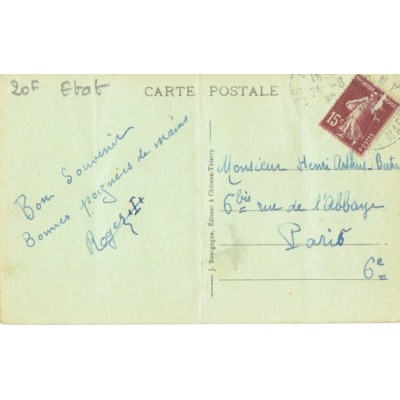 20F Etat
CARTE POSTALE
15c
POSTES
Bon Souvenir
Bonnes poignées de mains
Roger
J. Bourgogne, Éditeur à Château-Thierry
Monsieur Henri Arthus-Bertran
6bis rue de l'Abbaye
Paris
6e